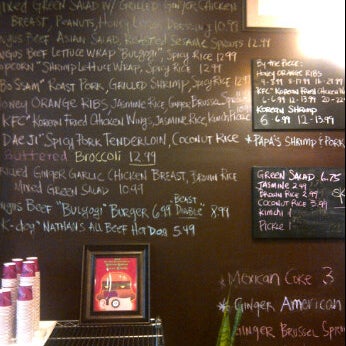 Mixed Green Salad w/ Grilled Ginger Chicken
Breast, Peanuts, Honey Lemon Dressing 10.49
Angus Beef Asian Salad, Roasted Sesame Sprouts 12.99
Angus Beef Lettuce Wrap "Bulgogi" Spicy Rice 12.99
Popcorn "Shrimp Lettuce Wrap, Spicy Rice 12.99
Bo Ssam" Roast Pork, Grilled Shrimp, Spicy Rice
Honey Orange Ribs, Jasmine Rice, Ginger Brussel Sprouts
KFC" Korean Fried Chicken Wings, Jasmine Rice, Kimchi Pickle
Daeji" Spicy Pork Tenderloin, Coconut Rice
buttered Broccoli 12.99
Grilled Ginger Garlic Chicken Breast, Brown Rice
Mixed Green Salad 10.49
Angus Beef "Bulgogi" Burger 6.99 Beast Double 8.99
K-dog" Nathan's All Beef Hot Dog 5.49
By the Piece:
Honey Orange Ribs
KFC" Korean Fried Chicken
6-6.99 12-13.99 20-22
Korean Shrimp
6 6.99 12-13.99
*Papa's Shrimp & Pork
Green Salad 6.75
Jasmine 2.99
Brown Rice 2.99
Coconut Rice 3.49
Kimchi 1
Pickle 1
* Mexican Coke 3
* Ginger American
Ginger Brussel Spro